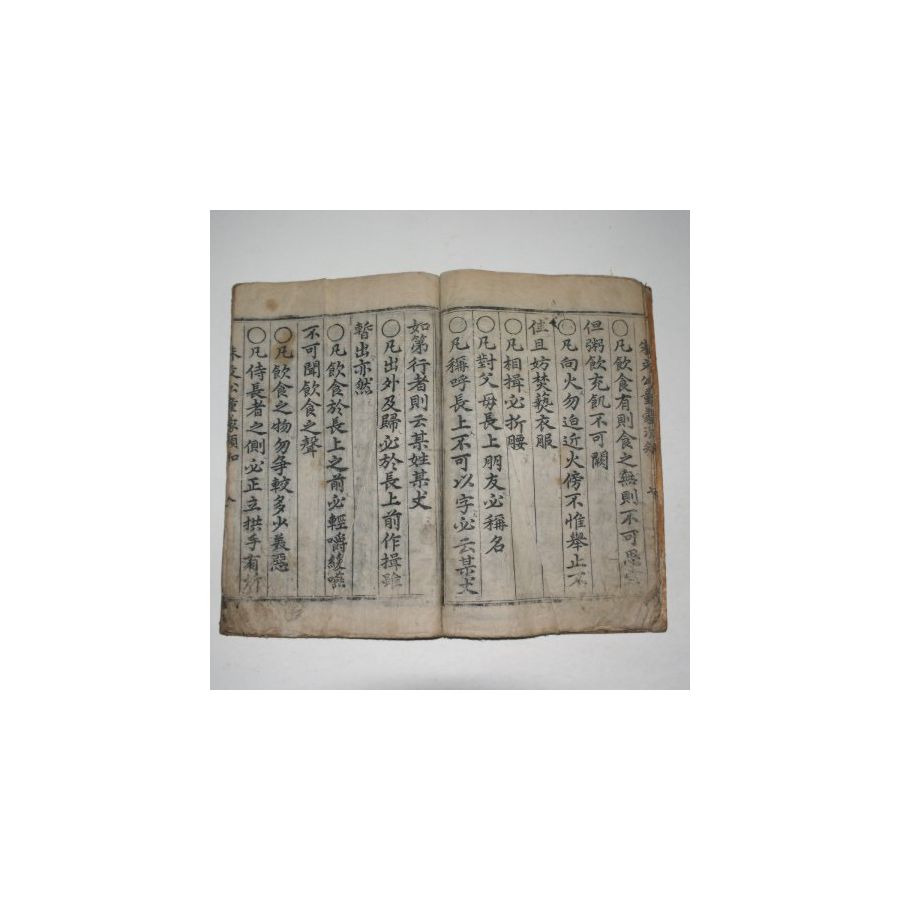 ○凡飲食有則食之無則不可思索
但粥飲充飢不可闕
○凡向火勿迫近火傍不惟舉止不
佳且妨焚爇衣服
○凡相揖必折腰
○凡對父母長上朋友必稱名
○凡稱呼長上不可以字必云某丈
如第行者則云某姓某丈
○凡出外及歸必於長上前作揖雖
暫出亦然
○凡飲食於長上之前必輕嚼緩嚥
不可聞飲食之聲
○凡飲食之物勿爭較多少美惡
○凡侍長者之側必正立拱手有所